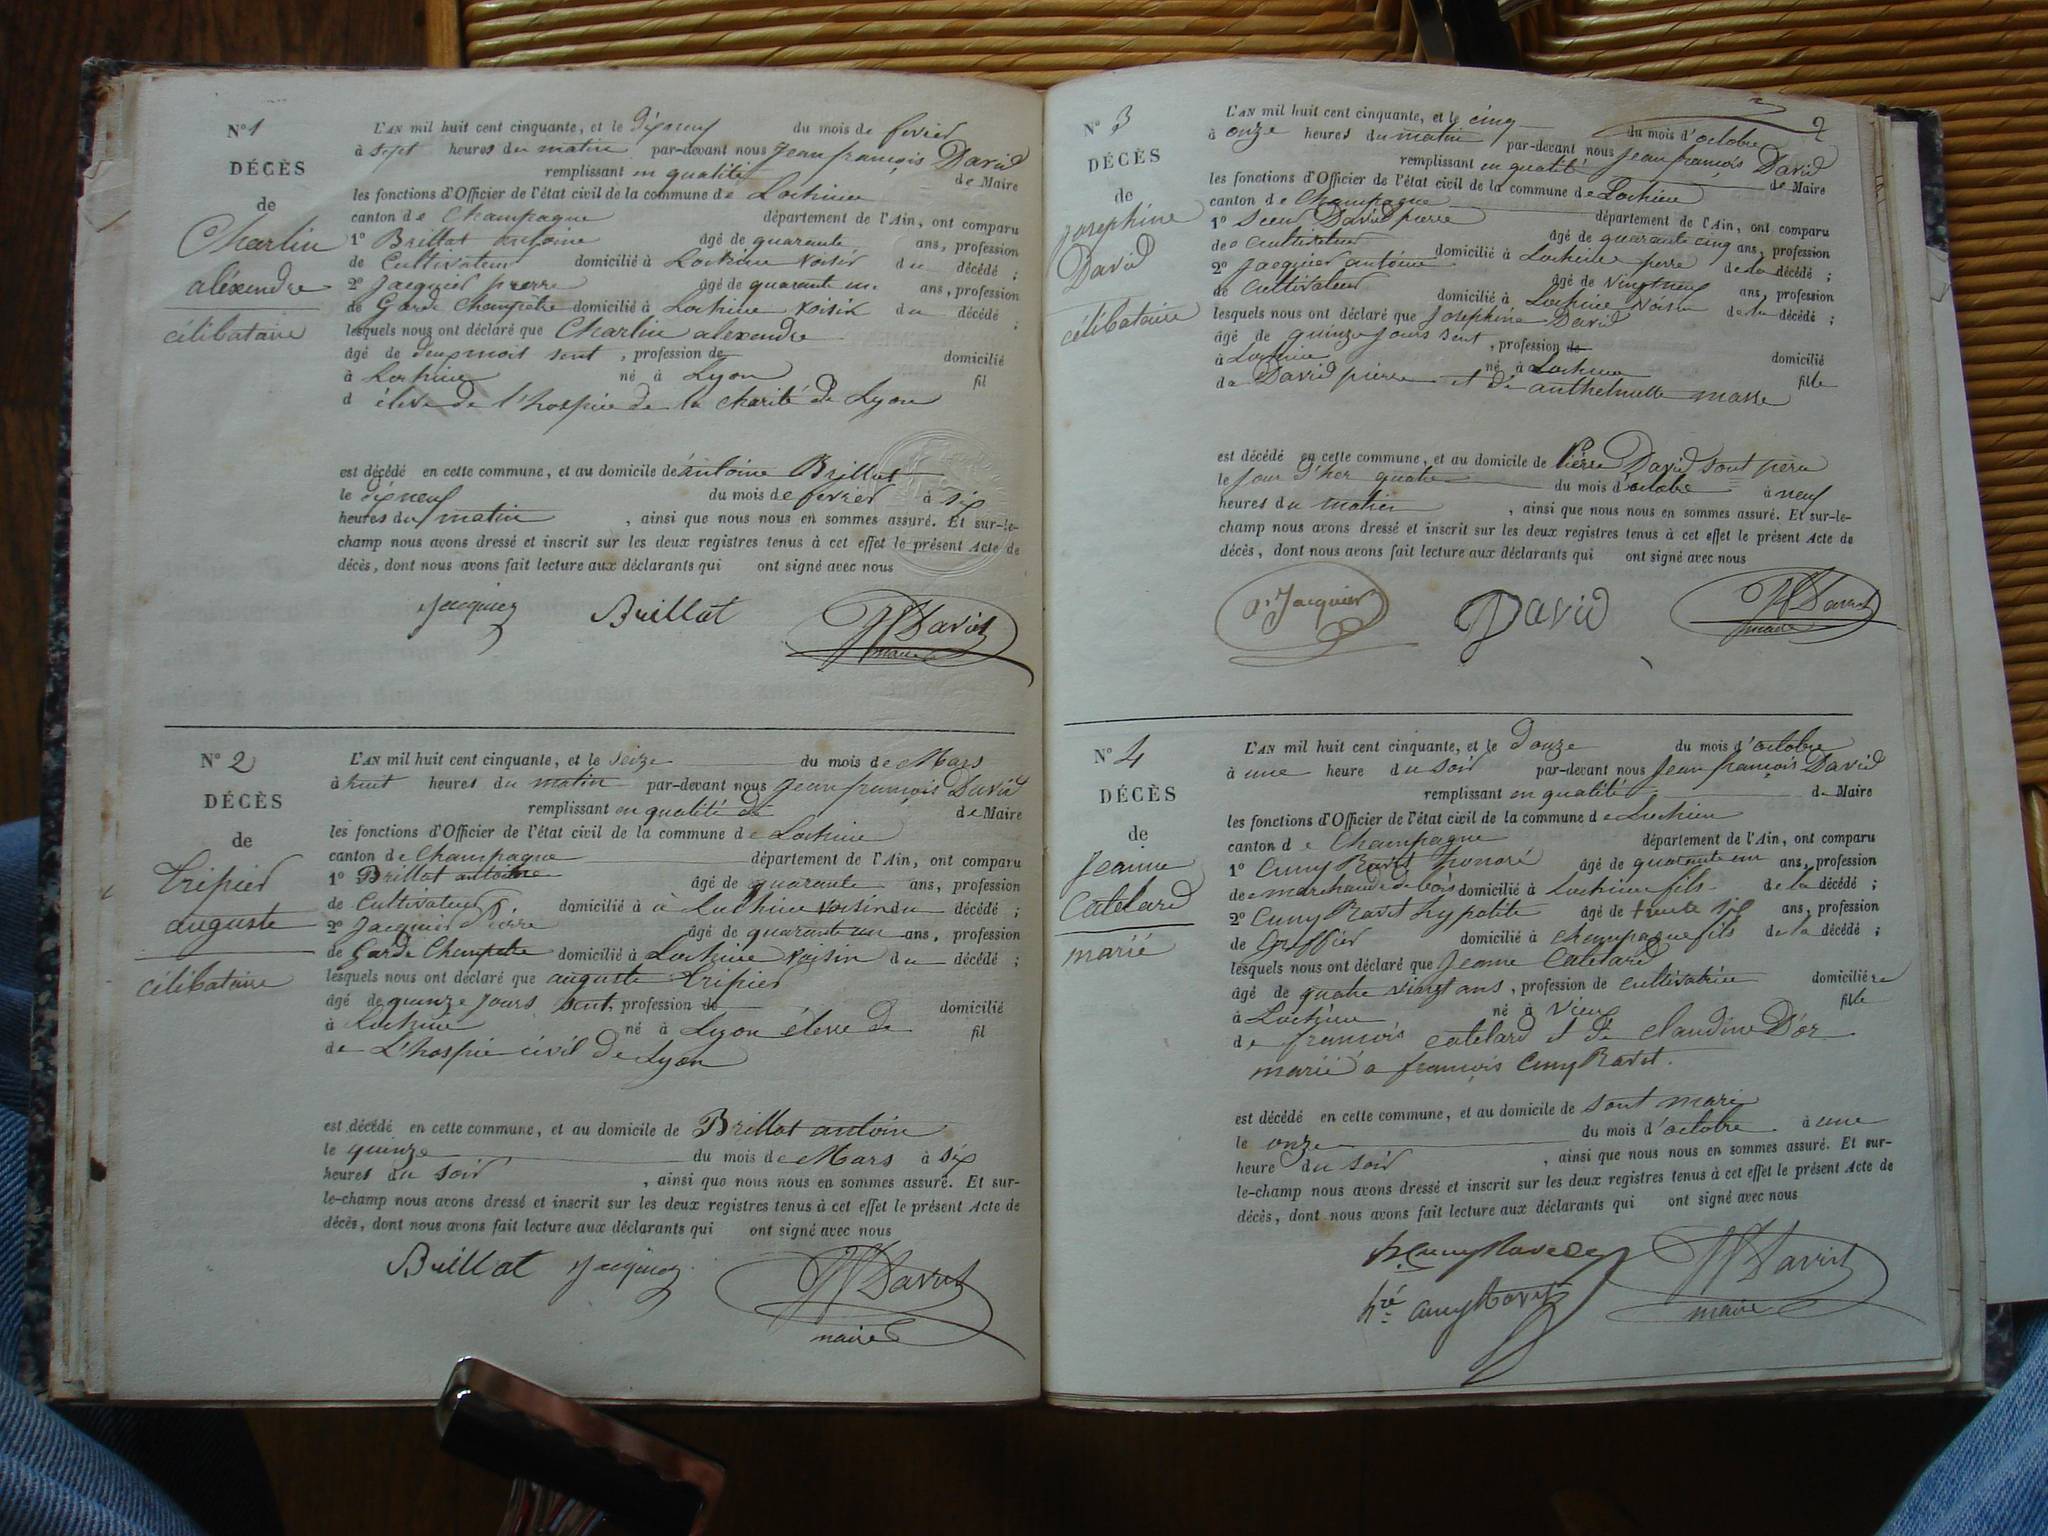 N° 1
DÉCÈS
de
Charlin
aléxendre
célibataire
L'AN mil huit cent cinquante, et le dixneuf du mois de fevrier
à sept heures du matin par-devant nous Jean françois David
remplissant en qualité de Maire
les fonctions d'Officier de l'état civil de la commune de Lochieu
canton de Champagne département de l'Ain, ont comparu
1° Brillat antoine âgé de quarante ans, profession
de Cultivateur domicilié à Lochieu voisin du décédé ;
2° Jacquier pierre âgé de quarante un ans, profession
de Garde Champetre domicilié à Lochieu voisin du décédé ;
lesquels nous ont déclaré que Charlin alexendre
âgé de deux mois sent , profession de domicilié
à Lochieu né à Lyon fil
d éleve de l'hospice de la charité de Lyon
est décédé en cette commune, et au domicile de antoine Brillat
le dixneuf du mois de fevrier à six
heures du matin , ainsi que nous nous en sommes assuré. Et sur-le-
champ nous avons dressé et inscrit sur les deux registres tenus à cet effet le présent Acte de
décès, dont nous avons fait lecture aux déclarants qui ont signé avec nous
Jacquier Brillat JF David
maire
N° 2
DÉCÈS
de
tripier
auguste
célibataire
L'AN mil huit cent cinquante, et le seize du mois de Mars
à huit heures du matin par-devant nous Jean françois David
remplissant en qualité de de Maire
les fonctions d'Officier de l'état civil de la commune de Lochieu
canton de Champagne département de l'Ain, ont comparu
1° Brillat antoine âgé de quarante ans, profession
de Cultivateur domicilié à à Lochieu voisin du décédé ;
2° Jacquier Pierre âgé de quarante un ans, profession
de Garde Champetre domicilié à Lochieu voisin du décédé ;
lesquels nous ont déclaré que auguste tripier
âgé de quinze jours sent, profession de domicilié
à Lochieu né à Lyon éleve de fil
de L'hospice civil de Lyon
est décédé en cette commune, et au domicile de Brillat antoine
le quinze du mois de Mars à six
heures du soir , ainsi que nous nous en sommes assuré. Et sur-
le-champ nous avons dressé et inscrit sur les deux registres tenus à cet effet le présent Acte de
décès, dont nous avons fait lecture aux déclarants qui ont signé avec nous
Brillat Jacquier JF David
maire
2
N° 3
DÉCÈS
de
Josephine
David
célibataire
L'AN mil huit cent cinquante, et le cinq du mois d'octobre
à onze heures du matin par-devant nous Jean françois David
remplissant en qualité de Maire
les fonctions d'Officier de l'état civil de la commune de Lochieu
canton de Champagne département de l'Ain, ont comparu
1° Sieur David pierre âgé de quarante cinq ans, profession
de Cultivateur domicilié à Lochieu perre de la décédé ;
2° Jacquier antoine âgé de vingt neuf ans, profession
de Cultivateur domicilié à Lochieu voisin de la décédé ;
lesquels nous ont déclaré que Josephine David
âgé de quinze jours sent , profession de domicilié
à Lochieu né à Lochieu fille
de David pierre et de anthelmette masse
est décédé en cette commune, et au domicile de Pierre David sont pere
le jour d'hier quatre du mois d'octobre à neuf
heures du matin , ainsi que nous nous en sommes assuré. Et sur-le-
champ nous avons dressé et inscrit sur les deux registres tenus à cet effet le présent Acte de
décès, dont nous avons fait lecture aux déclarants qui ont signé avec nous
Jacquier David JF David
maire
N° 4
DÉCÈS
de
Jeanne
Catelard
marié
L'AN mil huit cent cinquante, et le douze du mois d'octobre
à une heure du soir par-devant nous Jean françois David
remplissant en qualité de Maire
les fonctions d'Officier de l'état civil de la commune de Lochieu
canton de Champagne département de l'Ain, ont comparu
1° Cuny Ravet honoré âgé de quarante un ans, profession
de marchand de bois domicilié à Lochieu fils de la décédé ;
2° Cuny Ravet hypolite âgé de trente six ans, profession
de Greffier domicilié à Champagne fils de la décédé ;
lesquels nous ont déclaré que Jeanne Catelard
âgé de quatre vingt ans, profession de cultivatrice domiciliére
à Lochieu né à Vieu fille
de francois catelard et de claudine D'or
marié a françois Cuny Ravet.
est décédé en cette commune, et au domicile de sont mari
le onze du mois d'octobre à une
heure du soir , ainsi que nous nous en sommes assuré. Et sur-
le-champ nous avons dressé et inscrit sur les deux registres tenus à cet effet le présent Acte de
décès, dont nous avons fait lecture aux déclarants qui ont signé avec nous
h. Cuny Ravet JF David
hré Cuny Ravet maire